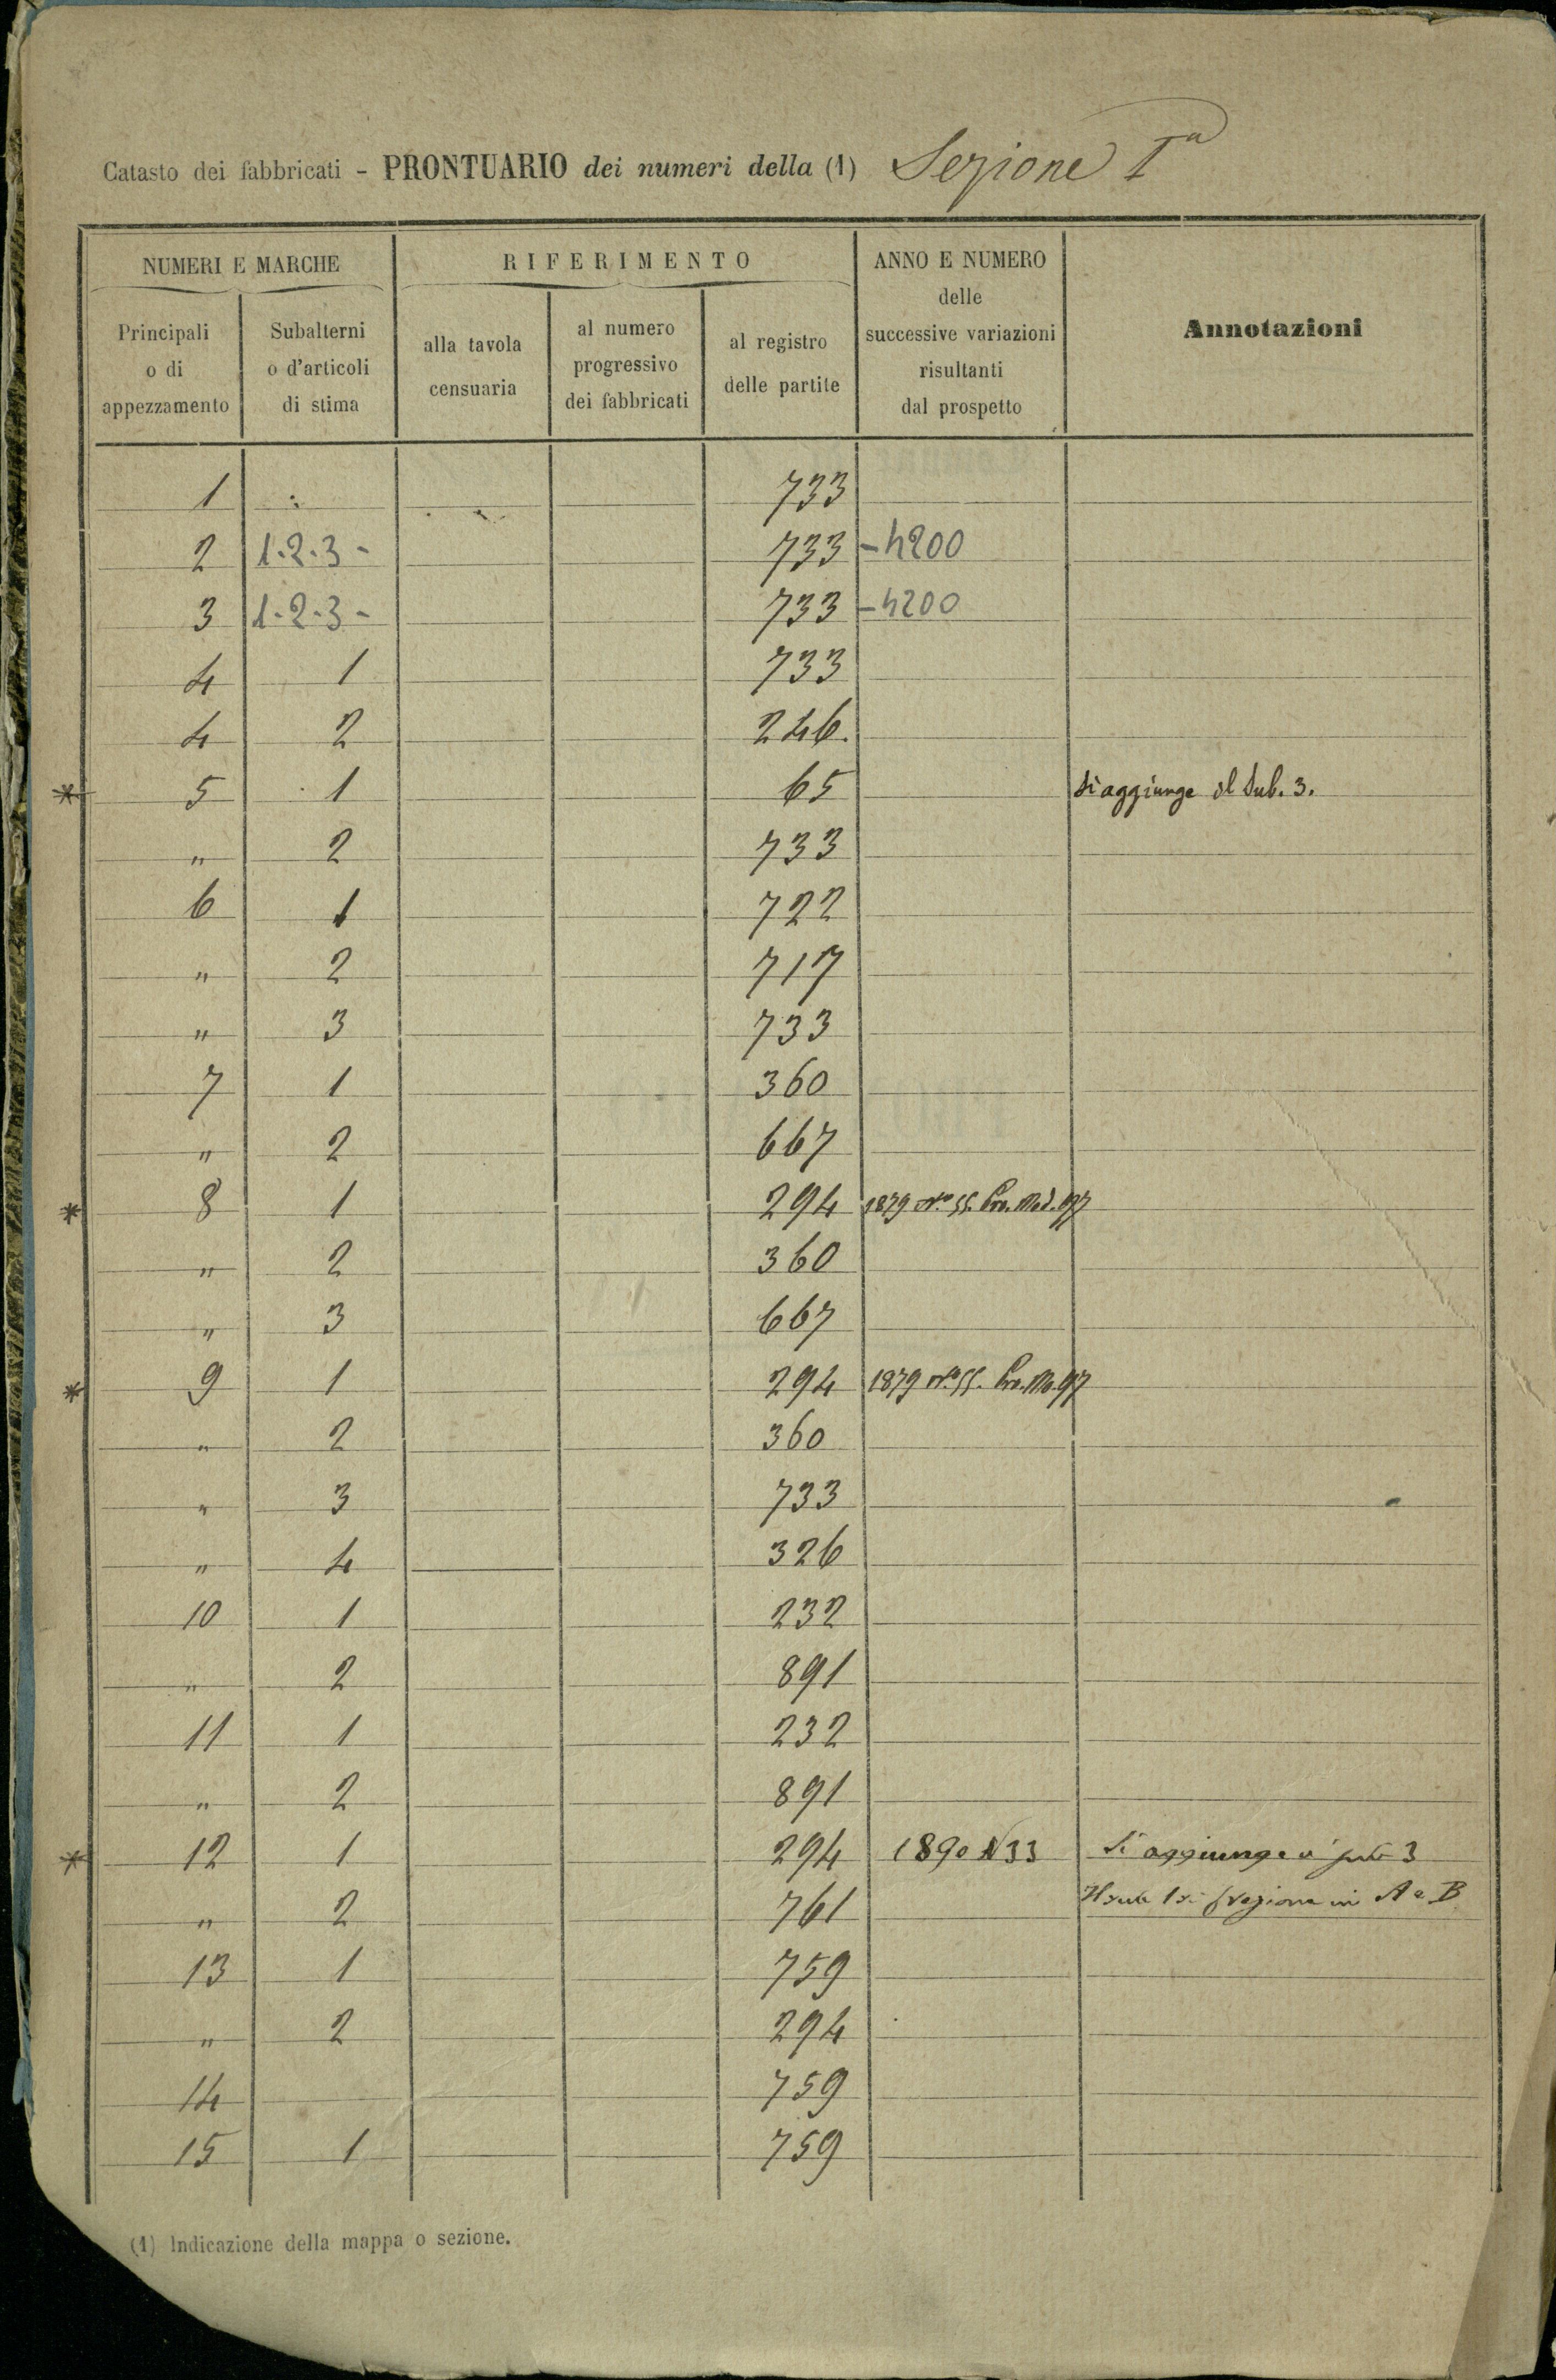 Catasto dei fabbricati - PRONTUARIO dei numeri della (1) Sezione Iª
NUMERI E MARCHE
RIFERIMENTO
ANNO E NUMERO
delle
successive variazioni
risultanti
dal prospetto
Annotazioni
Principali
o di
appezzamento
Subalterni
o d'articoli
di stima
alla tavola
censuaria
al numero
progressivo
dei fabbricati
al registro
delle partite
1 733
2 1.2.3- 733 -4200
3 1.2.3- 733 -4200
4 1 733
4 2 246.
* 5 1 65 Si aggiunge il Sub. 3.
" 2 733
6 1 722
" 2 717
" 3 733
7 1 360
" 2 667
* 8 1 294 1879 Nº 55. 97
" 2 360
" 3 667
* 9 1 294 1879 Nº 55. 97
" 2 360
" 3 733
" 4 326
10 1 232
" 2 891
11 1 232
" 2 891
* 12 1 294 1890 N 33 Si aggiunge il sub 3
" 2 761 Il sub 1 si fraziona in A e B
13 1 759
" 2 294
14 759
15 1 759
(1) Indicazione della mappa o sezione.